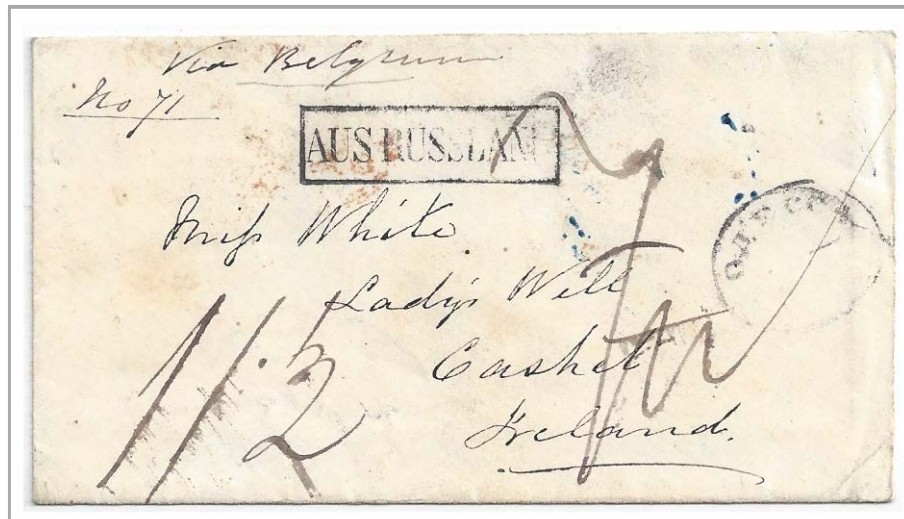 Via Belgium
No 71
AUS RUSSLAND
Miss White
Ladys Well
Cashel
Ireland.
1/2